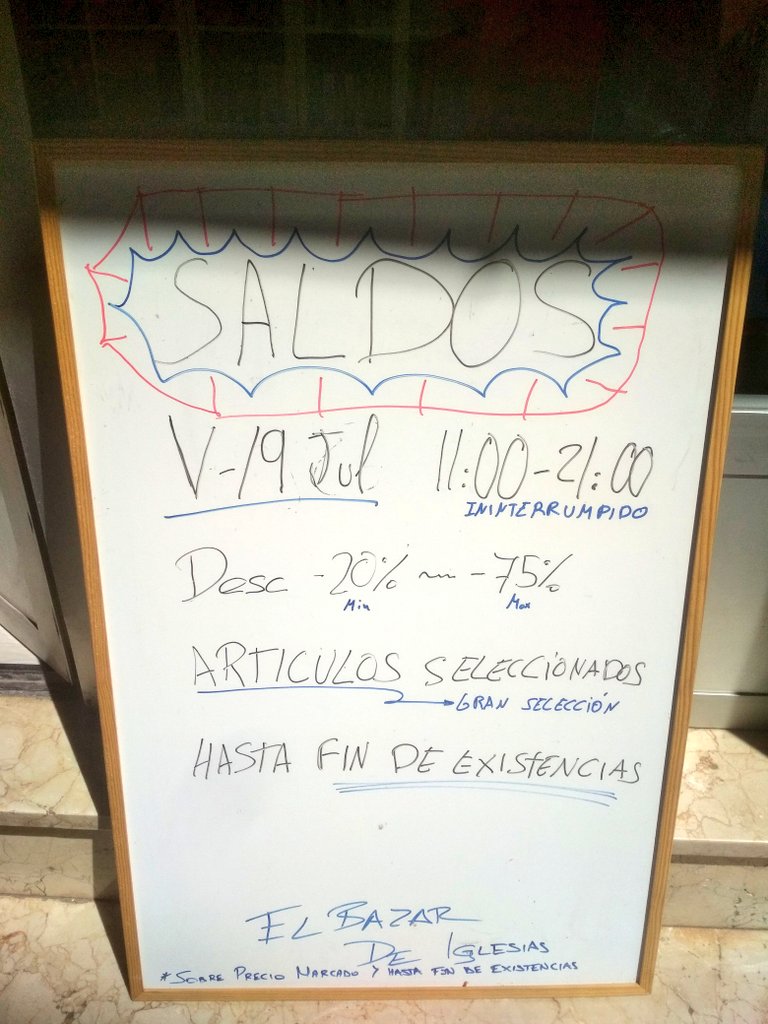 SALDOS
V-19 Jul 11:00-21:00
ININTERRUMPIDO
Desc -20% ~ -75%
Min Max
ARTICULOS SELECCIONADOS
GRAN SELECCIÓN
HASTA FIN DE EXISTENCIAS
EL BAZAR
DE IGLESIAS
*SOBRE PRECIO MARCADO Y HASTA FIN DE EXISTENCIAS